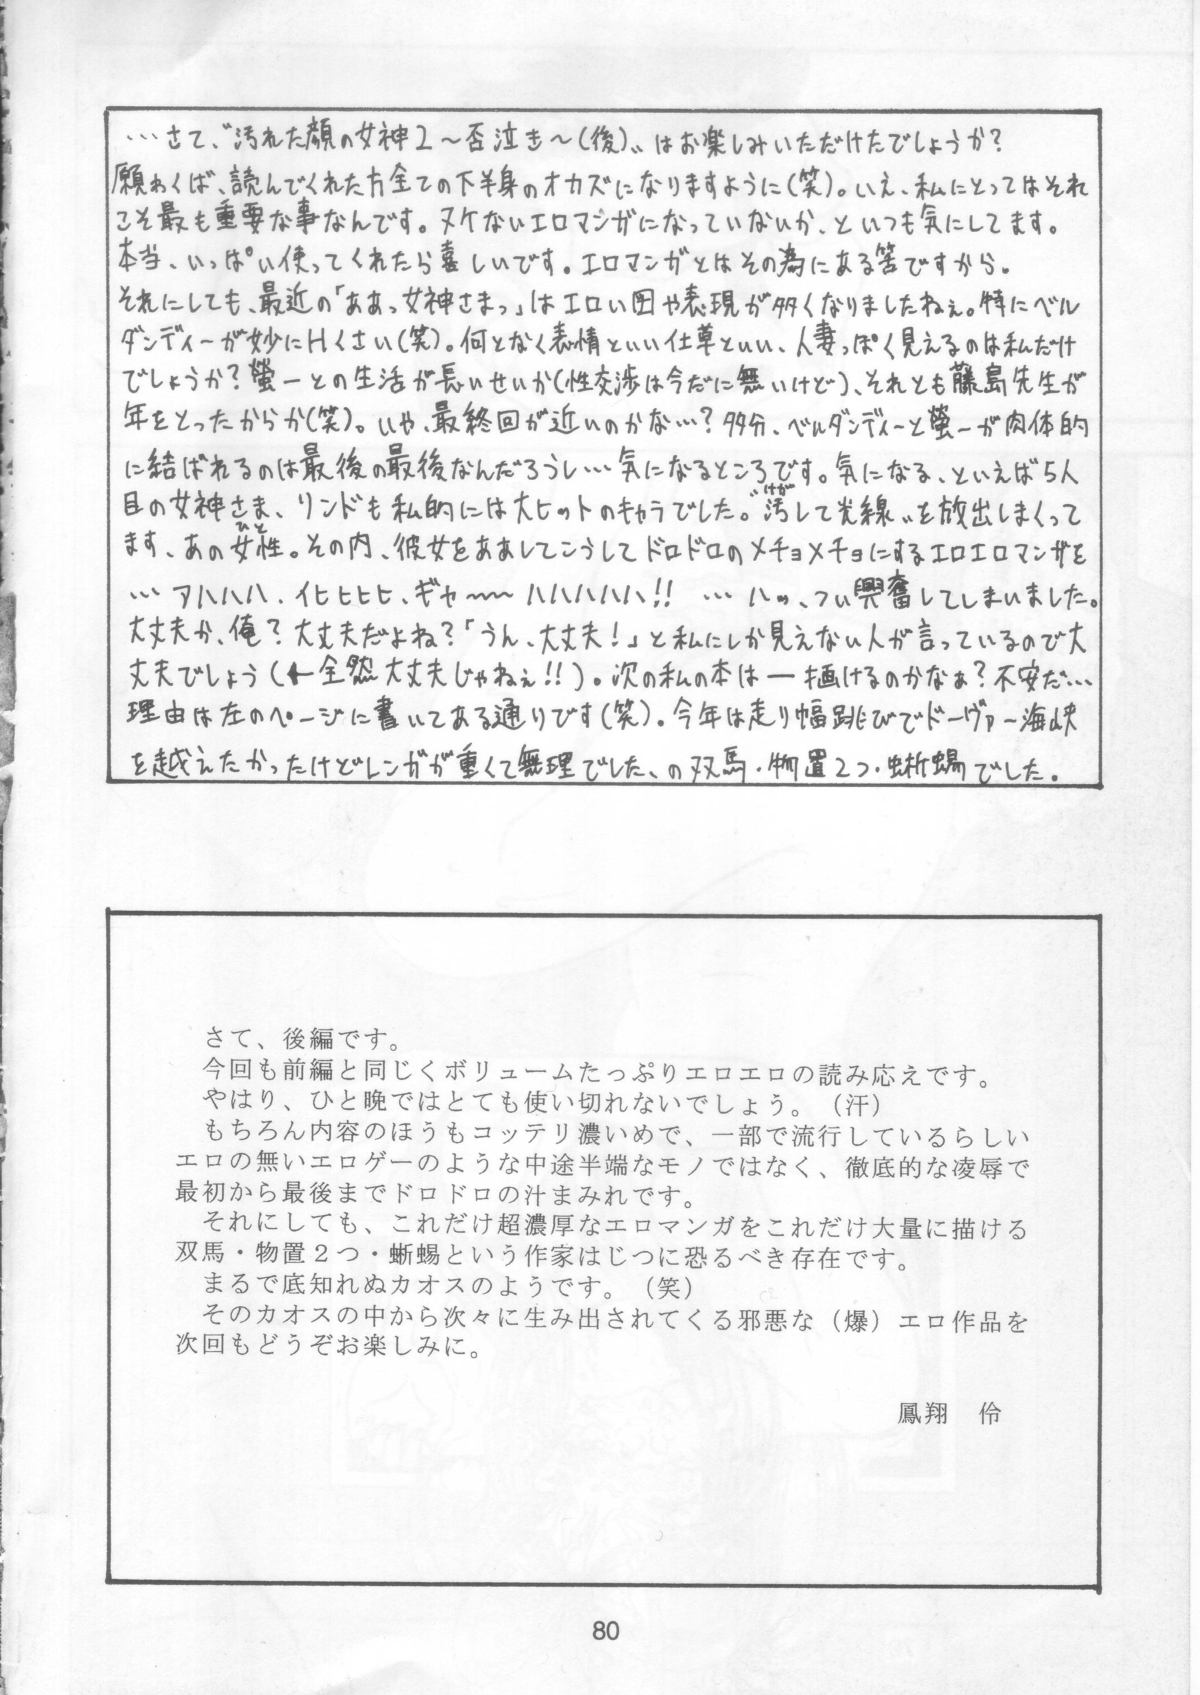 …さて、〝汚れた顔の女神2〜否泣き〜(後)〟はお楽しみいただけたでしょうか?
願わくば、読んでくれた方全ての下半身のオカズになりますように(笑)。いえ、私にとってはそれ
こそ最も重要な事なんです。ヌケないエロマンガになっていないか、といつも気にしてます。
本当、いっぱい使ってくれたら喜しいです。エロマンガとはその為にある筈ですから。
それにしても、最近の「ああっ女神さまっ」はエロい図や表現が多くなりましたねぇ。特にベル
ダンディーが妙にHくさい(笑)。何となく表情といい仕草といい、人妻っぽく見えるのは私だけ
でしょうか?螢一との生活が長いせいか(性交渉は今だに無いけど)、それとも藤島先生が
年をとったからか(笑)。いや、最終回が近いのかな…?多分、ベルダンディーと螢一が肉体的
に結ばれるのは最後の最後なんだろうし…気になるところです。気になる、といえば5人
目の女神さま、リンドも私的には大ヒットのキャラでした。〝汚して光線〟を放出しまくって
ます、あの女性。その内、彼女をああしてこうしてドロドロのメチョメチョにするエロエロマンガを
…アハハハ、イヒヒヒヒ、ギャ〜〜ハハハハハ!! …ハッ、つい興奮してしまいました。
大丈夫か、俺?大丈夫だよね?「うん、大丈夫!」と私にしか見えない人が言っているので大
丈夫でしょう(←全然大丈夫じゃねぇ!!)。次の私の本は―描けるのかなぁ?不安だ…
理由は左のページに書いてある通りです(笑)。今年は走り幅跳びでドーヴァー海峡
を越えたかったけどレンガが重くて無理でした、の双馬・物置2つ・蜥蜴でした。
さて、後編です。
今回も前編と同じくボリュームたっぷりエロエロの読み応えです。
やはり、ひと晩ではとても使い切れないでしょう。(汗)
もちろん内容のほうもコッテリ濃いめで、一部で流行しているらしい
エロの無いエロゲーのような中途半端なモノではなく、徹底的な凌辱で
最初から最後までドロドロの汁まみれです。
それにしても、これだけ超濃厚なエロマンガをこれだけ大量に描ける
双馬・物置2つ・蜥蜴という作家はじつに恐るべき存在です。
まるで底知れぬカオスのようです。(笑)
そのカオスの中から次々に生み出されてくる邪悪な(爆)エロ作品を
次回もどうぞお楽しみに。
鳳翔　伶
80